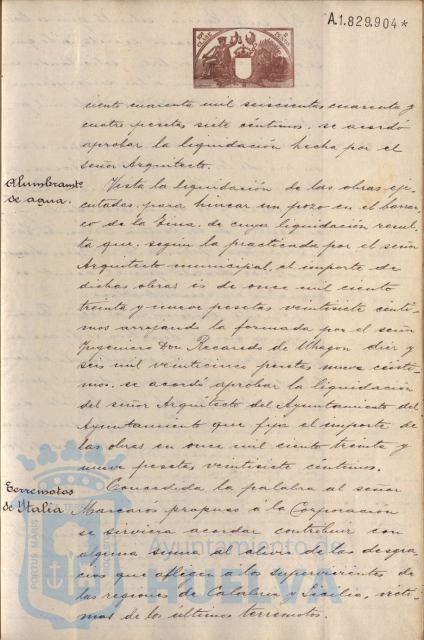 A.1.829.904*
ciento cuarenta mil seiscientas cuarenta y
cuatro pesetas siete céntimos, se acordó
aprobar la liquidación hecha por el
señor Arquitecto.
Alumbramto
de agua.
Vista la liquidación de las obras eje-
cutadas para hincar un pozo en el barran-
co de la de cuya liquidación resul-
ta que, según la practicada por el señor
Arquitecto municipal, el importe de
dichas obras es de once mil ciento
treinta y nueve pesetas veintisiete cénti-
mos arrojando la formada por el señor
Ingeniero Don Recaredo de Uhagon diez y
seis mil veinticinco pesetas nueve cénti-
mos, se acordó aprobar la liquidación
del señor Arquitecto del Ayuntamiento del
Ayuntamiento que fija el importe de
las obras en once mil ciento treinta y
nueve pesetas veintisiete céntimos.
Terremotos
de Italia
Concedida la palabra al señor
Mascarós propuso á la Corporación
se sirviera acordar contribuir con
alguna suma al alivio de las desgra-
cias que afligen á los supervivientes de
las regiones de Calabria y Sicilia, vícti-
mas de los últimos terremotos.
PORTUS MARIS
Ayuntamiento de
HUELVA